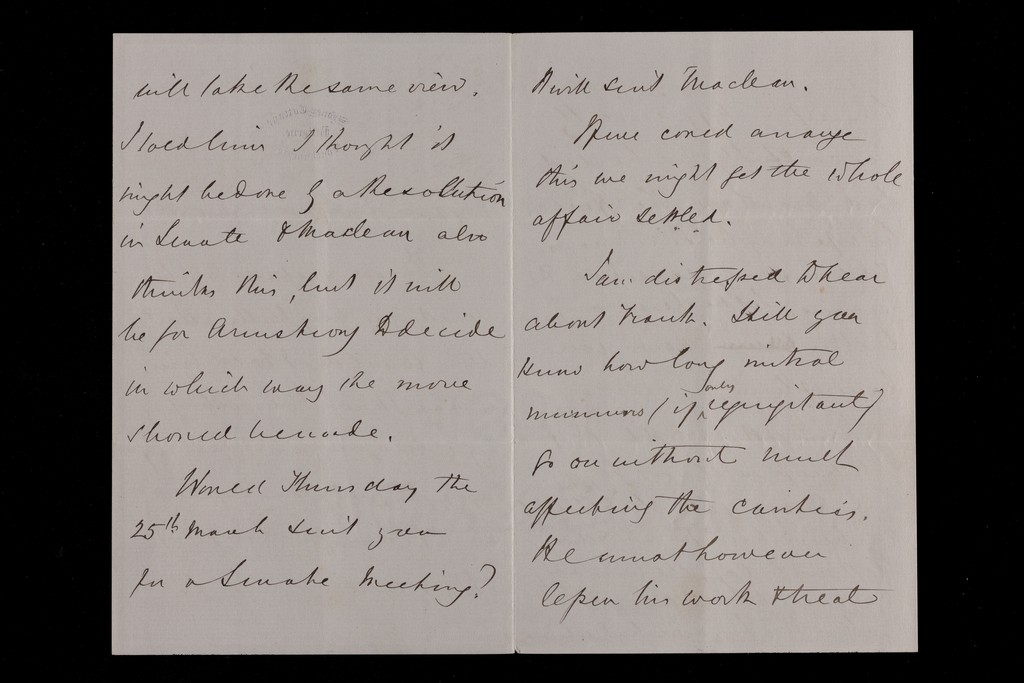 will take the same view.
I told him I thought it
might be done by a Resolution
in Senate & Maclean also
thinks this, but it will
be for Armstrong to decide
in which way the move
should be made.
Would Thursday the
25th March suit you
for a Senate Meeting?
It will suit Maclean.
If we could arrange
this we might get the whole
affair settled.
I am distressed to hear
about Frank. Still you
know how long mitral
murmurs (if only regurgitant)
go on without much
affecting the
He must however
lessen his work & treat